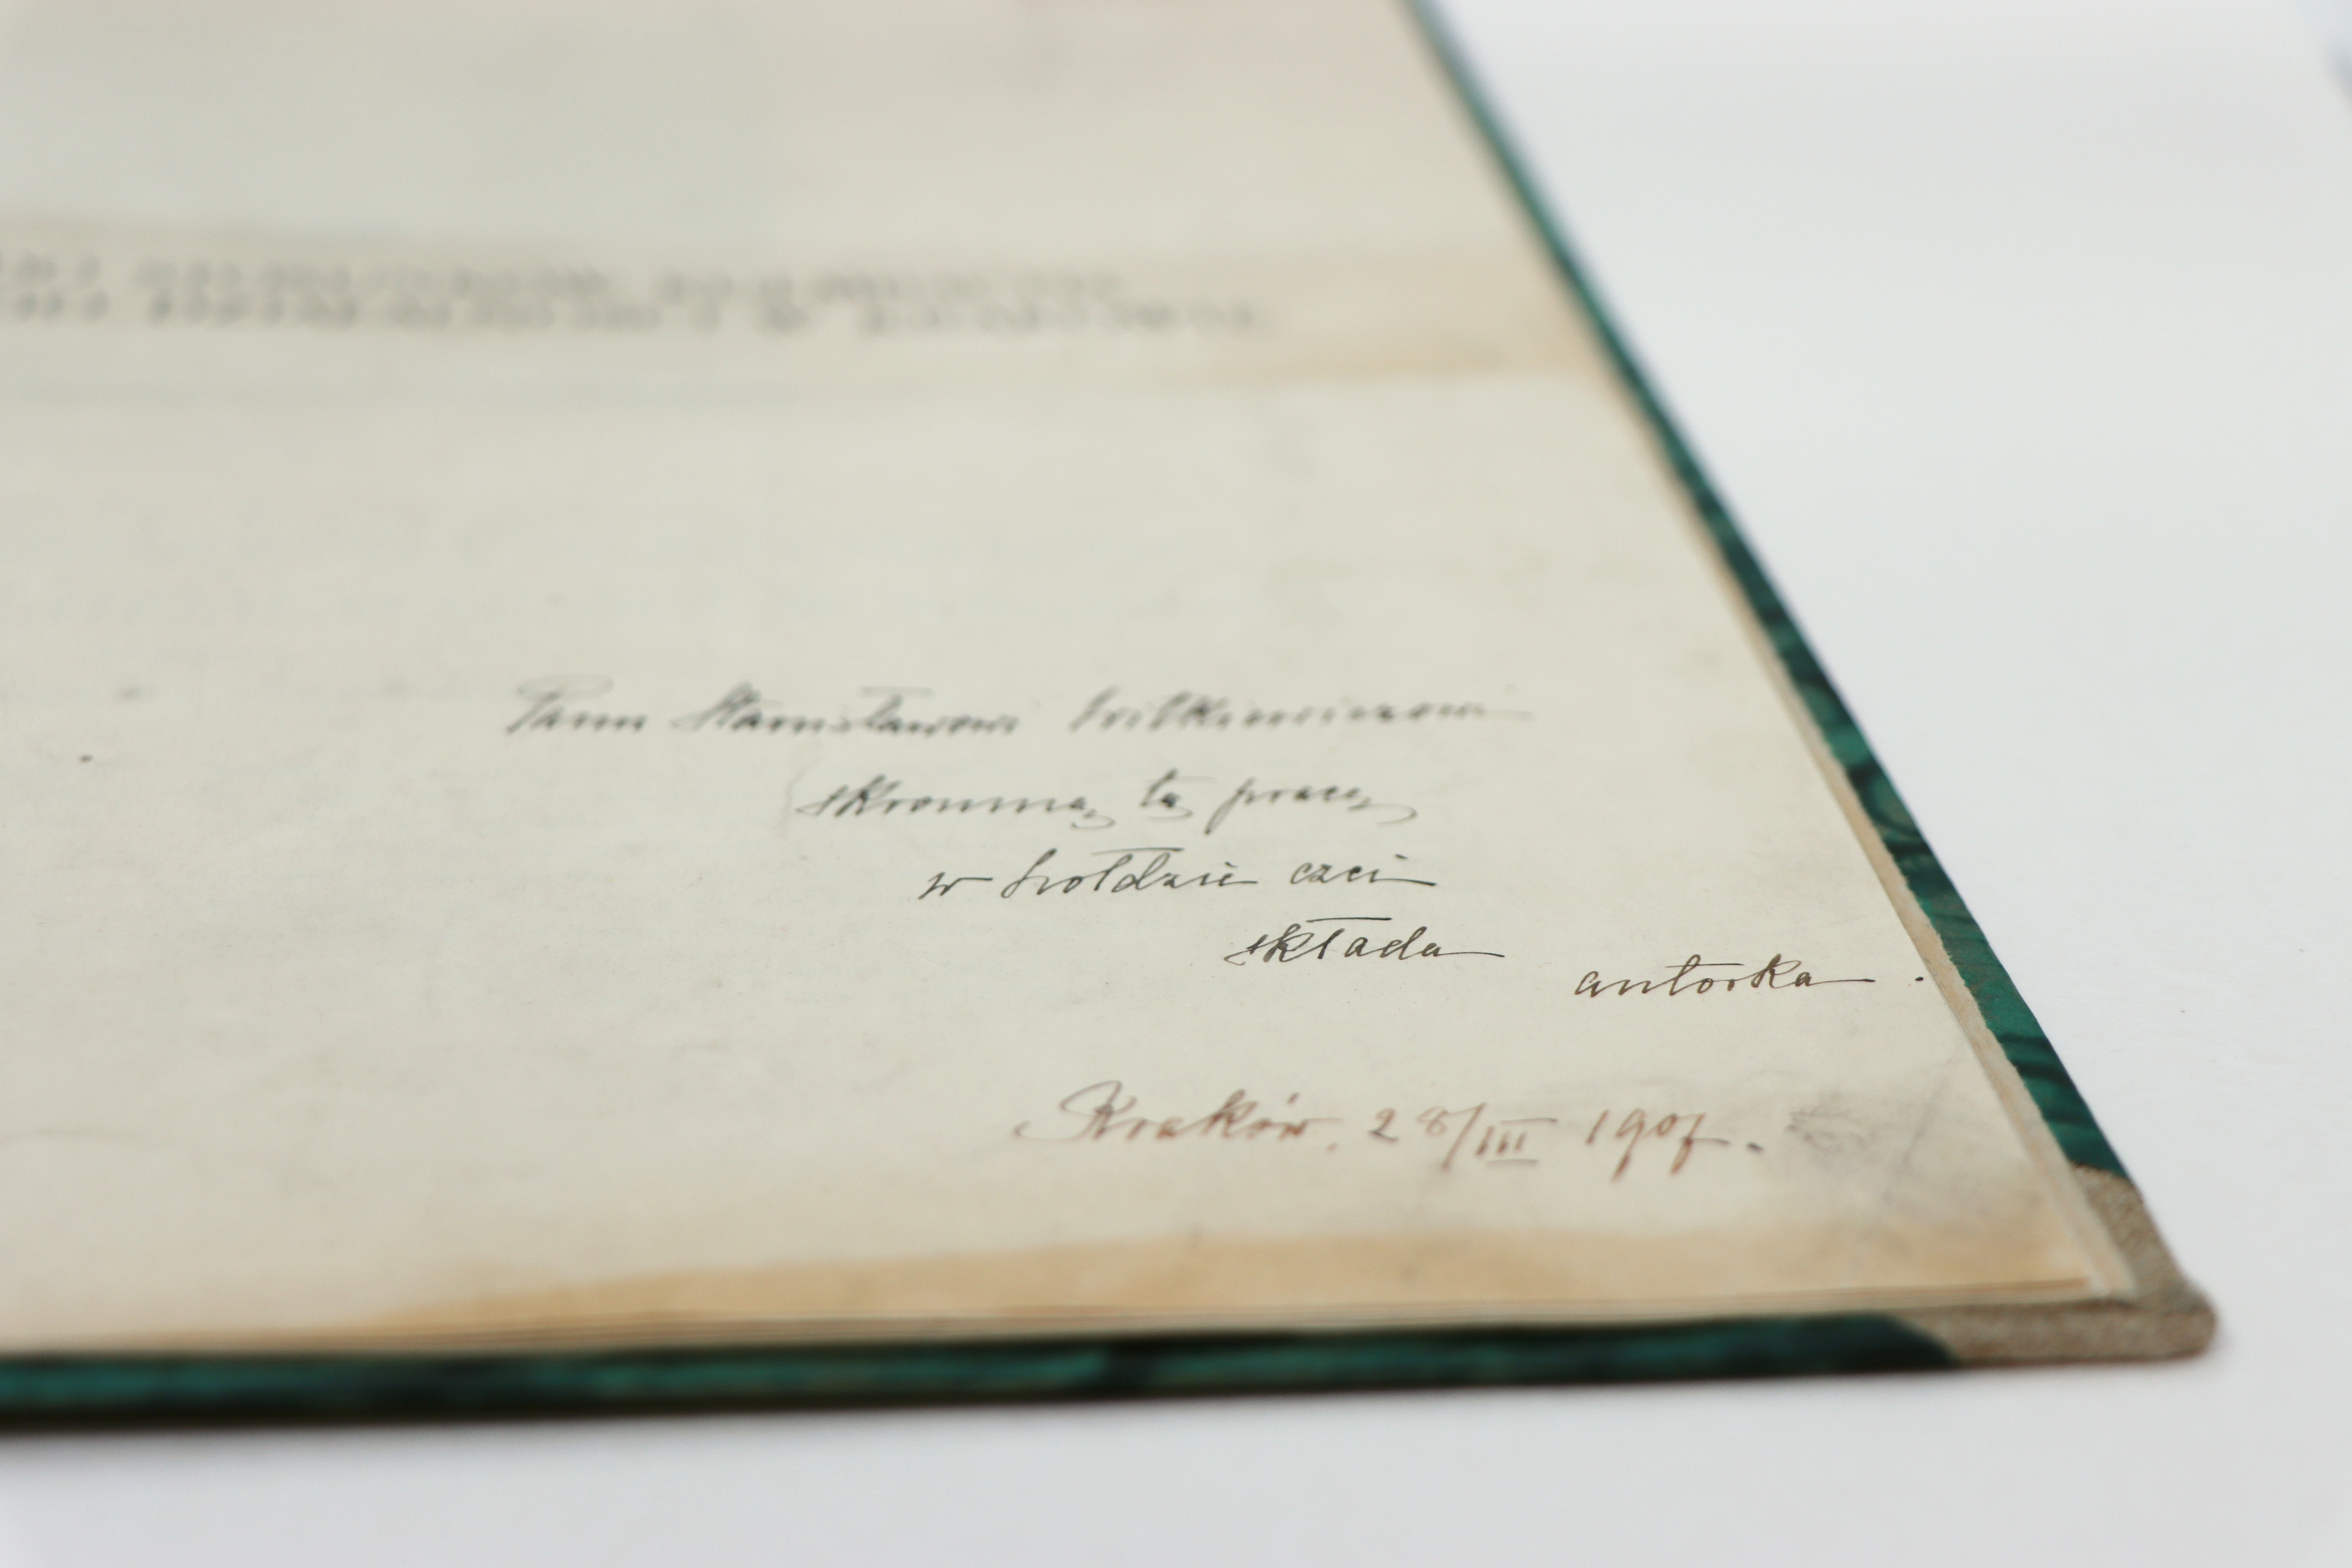 Panu Stanisławowi Witkiewiczowi
skromną tę pracę
w hołdzie czci
składa
autorka.
Kraków. 28/III 1907.